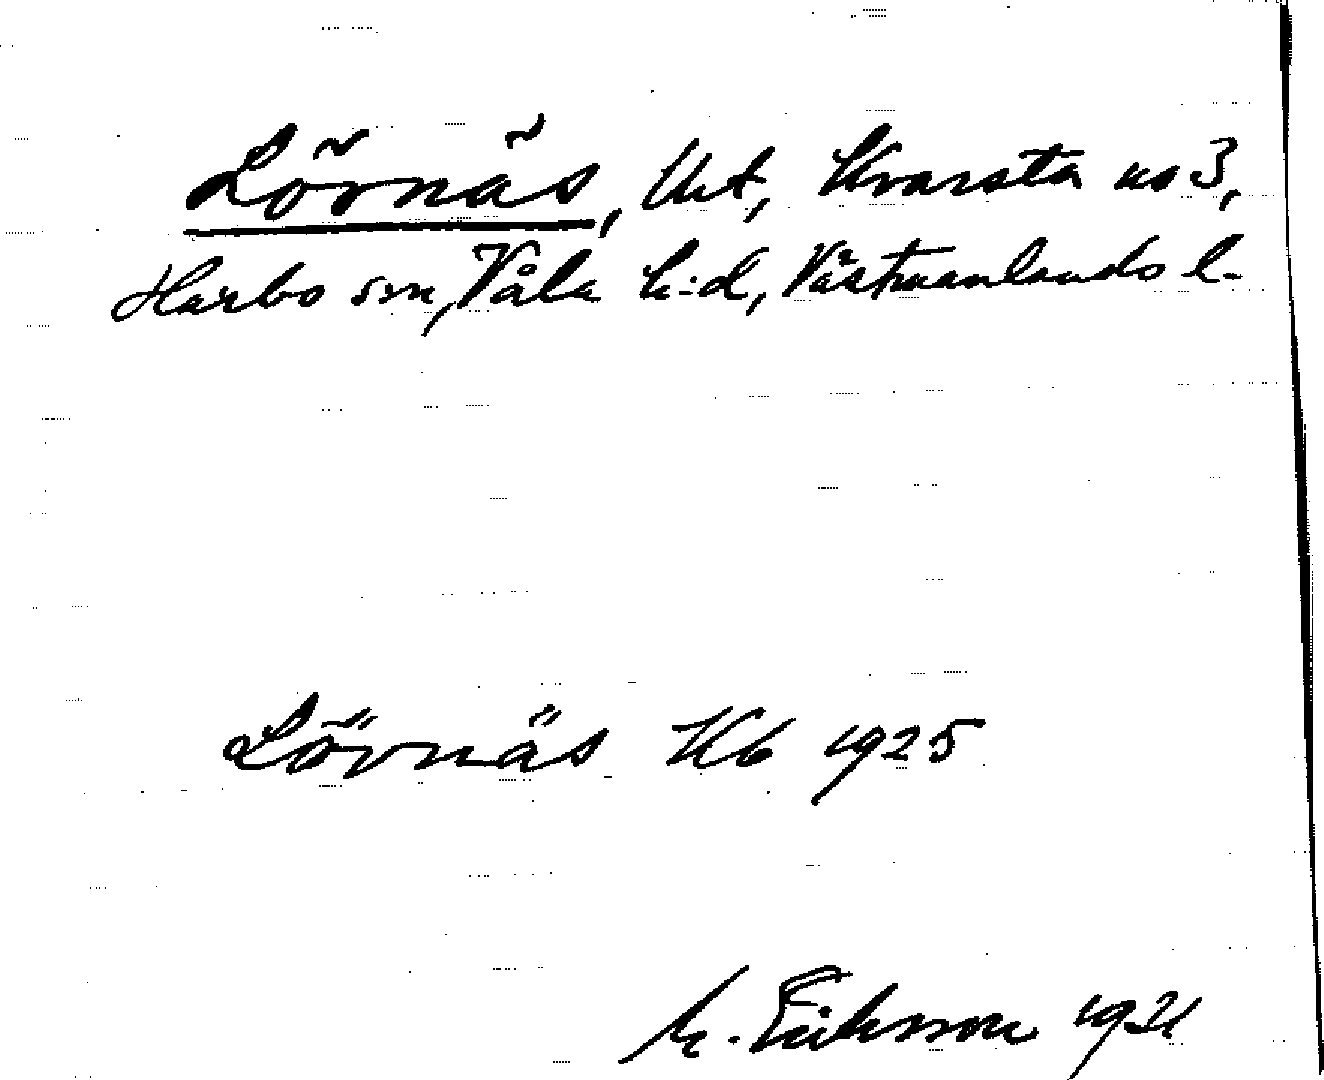 Lövnäs, Ut, Kvarsta no 3,
Harbo sn, Våla h:d, Västmanlands l-
Lövnäs Kb 1925
M. Eriksson 1931